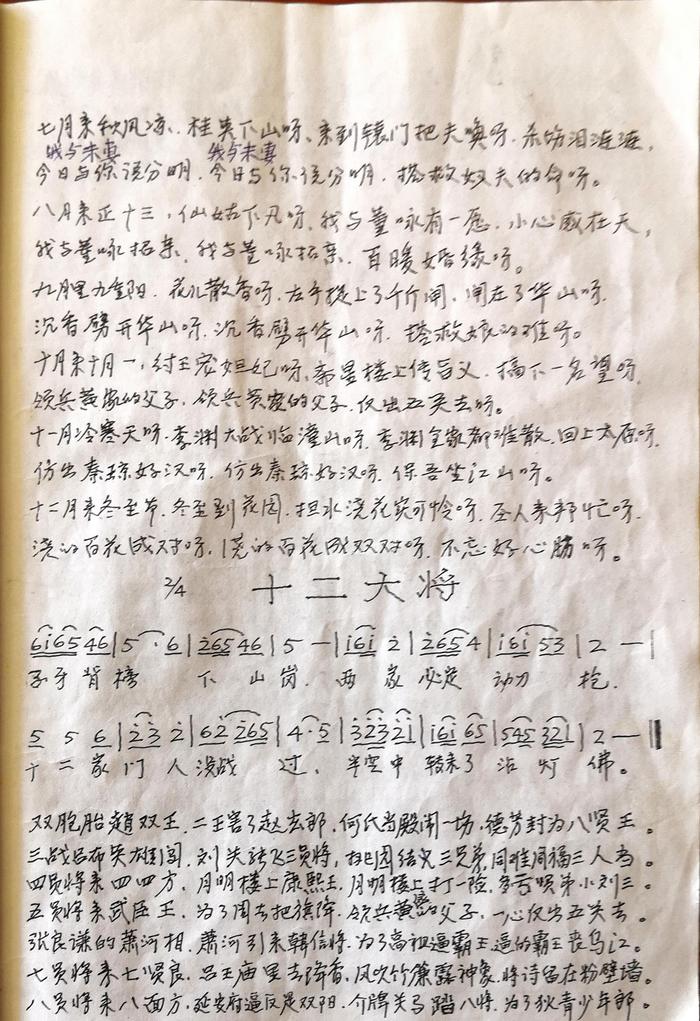 七月来秋风凉、桂英下山呀、来到辕门把夫唤呀、杀场泪涟涟。
我与未妻 我与未妻
今日与你说分明、今日与你说分明、搭救奴夫的命呀。
八月来正十三，仙姑下凡呀、我与董咏有一愿、小心感在天，
我与董咏招亲、我与董咏招亲、百暖婚缘呀。
九月里九重阳、花儿散香呀、左手提上了千斤闸、闸在了华山呀、
沉香劈开华山呀、沉香劈开华山呀、搭救娘的难呀。
十月来十月一，纣王宠妲妃呀、斋星楼上传旨义、搞下一名望呀、
领兵黄家的父子、领兵黄家的父子、仅出五关去呀。
十一月冷寒天呀、李渊大战临潼山呀、李渊全家都难散、回上太原呀、
仿出秦琼好汉呀、仿出秦琼好汉呀、保吾坐江山呀。
十二月来冬至节、冬至到花园、担水浇花实可怜呀、圣人来邦忙呀、
浇的百花成对呀、浇的百花成双对呀、不忘好心肠呀。
2/4 十二大将
6i65 46 | 5 · 6 | 265 46 | 5 — | i6i 2 | 265 4 | i6i 53 | 2 —
子牙背榜 下山岗、两家必定动刀枪、
5 5 6 | 23 2 | 62 265 | 4 · 5 | 3232i | i6i 65 | 545 321 | 2 —
十二家门人没战过、半空中转来了活灯佛。
双胞胎趙双王、二王害了赵玄郎、何氏当殿闹一场、德芳封为八贤王。
三战吕布英雄闯、刘关张飞三员将、桃园结义三兄弟、同难同福三人为。
四员将来四四方、月明楼上康熙王、月明楼上打一险、多亏呗弟小刘三。
五员将来武臣王、为了周去把旗绛、领兵黄家的父子、一心仅出五关去。
张良谦的萧河相、萧河引来韩信将、为了高祖逼霸王、逼的霸王丧乌江。
七员将来七贤良、吕王庙里去降香、风吹竹簾露神象、将诗留在粉壁墙。
八员将来八面方、延安府逼反是双阳、介牌关马踏八将、为了狄青少年郎。